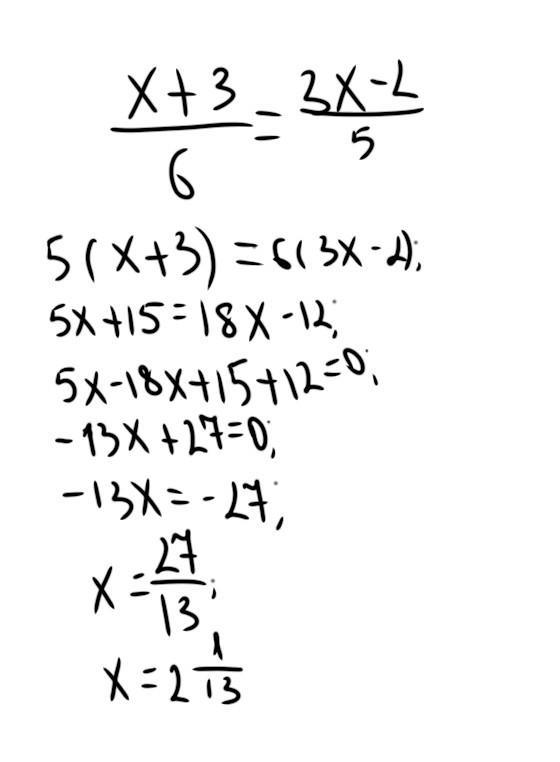 x+3/6 = 3x-2/5
5(x+3)=6(3x-2);
5x+15=18x-12;
5x-18x+15+12=0;
-13x+27=0;
-13x=-27;
x=27/13;
x=2 1/13